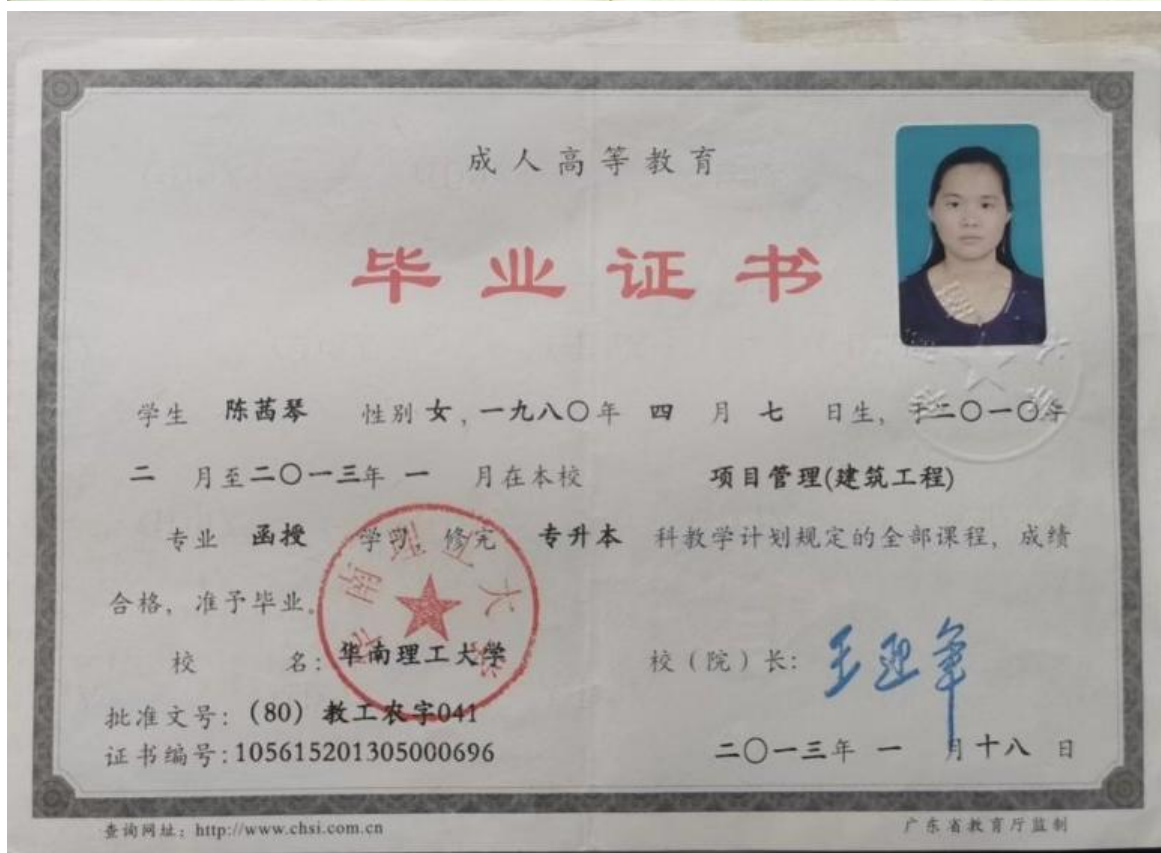 成人高等教育
毕业证书
学生 陈茜琴 性别 女，一九八〇年 四 月 七 日生，于二〇一〇年
二 月至二〇一三年 一 月在本校 项目管理(建筑工程)
专业 函授 学习 修完 专升本 科教学计划规定的全部课程，成绩
合格，准予毕业。
校 名：华南理工大学
校（院）长：王迎军
批准文号：（80）教工农字041
证书编号：105615201305000696
二〇一三年 一 月十八 日
华南理工大学
查询网址：http://www.chsi.com.cn
广东省教育厅监制